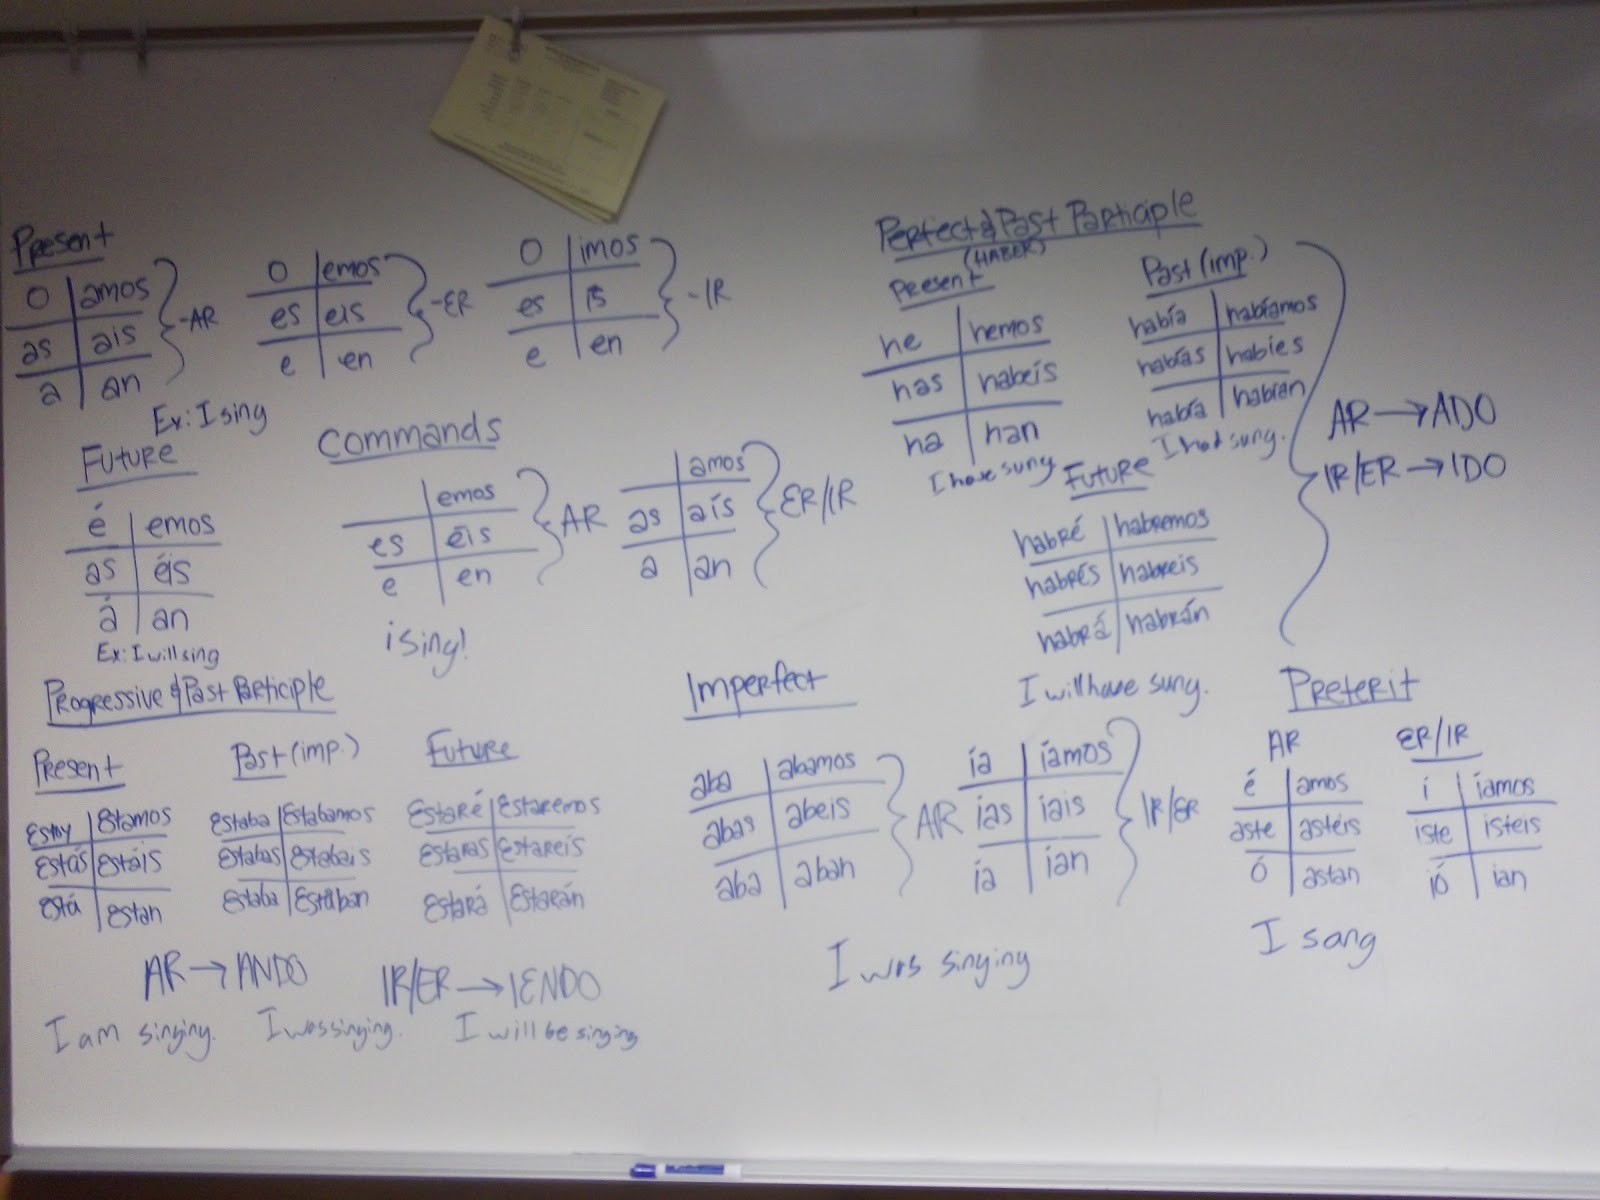 Present
O | amos
as | ais
a | an
-AR
O | emos
es | eis
e | en
-ER
O | imos
es | ís
e | en
-IR
Ex: I sing
Future
é | emos
as | éis
á | an
Ex: I will sing
Commands
emos
es | éis
e | en
AR
amos
as | aís
a | an
ER/IR
¡Sing!
Perfect & Past Participle
(HABER)
Present
he | hemos
has | habeís
ha | han
I have sung
Past (imp.)
había | habíamos
habías | habíes
había | habían
I had sung.
Future
habré | habremos
habrés | habreis
habrá | habrán
I will have sung.
AR → ADO
IR/ER → IDO
Progressive & Past Participle
Present
Estoy | Estamos
Estás | Estáis
Está | Estan
Past (imp.)
Estaba | Estabamos
Estabas | Estabais
Estaba | Estaban
Future
Estaré | Estaremos
Estaras | Estareís
Estará | Estarán
AR → ANDO
IR/ER → IENDO
I am singing.
I was singing.
I will be singing
Imperfect
aba | abamos
abas | abeis
aba | aban
AR
ía | íamos
ías | íais
ía | ían
IR/ER
I was singing
Preterit
AR
é | amos
aste | astéis
Ó | astan
ER/IR
í | íamos
iste | isteis
ió | ian
I sang